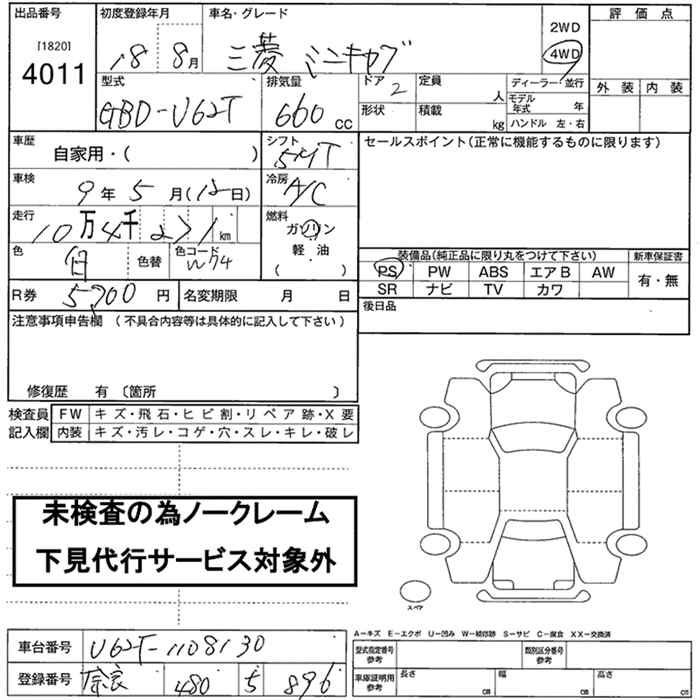 出品番号 初度登録年月 車名・グレード 評価点
[1820]
4011
18 8月 三菱 ミニキャブ 2WD
4WD
外装 内装
型式 排気量 ドア 定員 ディーラー・並行
GBD-U62T 660 cc 2 人 モデル年式 年
形状 積載 kg ハンドル 左・右
車歴 シフト セールスポイント(正常に機能するものに限ります)
自家用・( ) 5MT
車検 冷房
9年 5月(12日) A/C
走行 燃料
10万4千271km ガソリン
軽油
( )
色 色替 色コード 装備品(純正品に限り丸をつけて下さい) 新車保証書
白 W74 PS PW ABS エアB AW 有・無
SR ナビ TV カワ
R券 円 名変期限 月 日
後日品
注意事項申告欄 (不具合内容等は具体的に記入して下さい)
修復歴 有 〔箇所 〕
検査員 FW キズ・飛石・ヒビ割・リペア跡・X要
記入欄 内装 キズ・汚レ・コゲ・穴・スレ・キレ・破レ
未検査の為ノークレーム
下見代行サービス対象外
スペア
A−キズ E−エクボ U−凹み W−補修跡 S−サビ C−腐食 XX−交換済
車台番号 U62T-1108130 型式指定番号 参考 類別区分番号 参考
登録番号 奈良 480 5 896 車庫証明用 参考 長さ cm 幅 cm 高さ cm